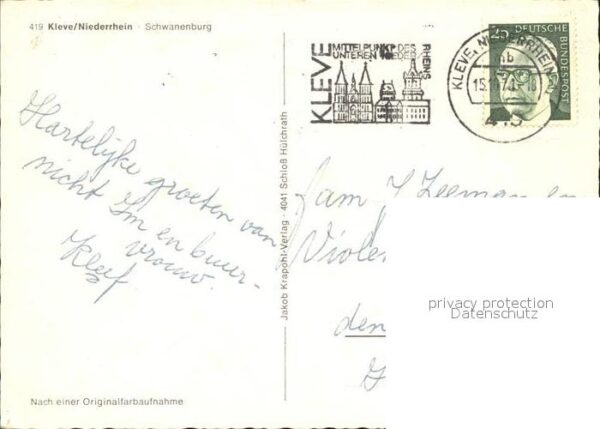 419 Kleve/Niederrhein · Schwanenburg
Hartelijke groeten van
nicht Em en buur-
vrouw.
Kleef
Nach einer Originalfarbaufnahme
Jakob Krapohl-Verlag · 4041 Schloß Hülchrath
KLEVE
MITTELPUNKT DES
UNTEREN NIEDER
RHEINS
KLEVE, NIEDERRHEIN
419
25
DEUTSCHE
BUNDESPOST
fam J Zeeman en
Viole
den
privacy protection
Datenschutz